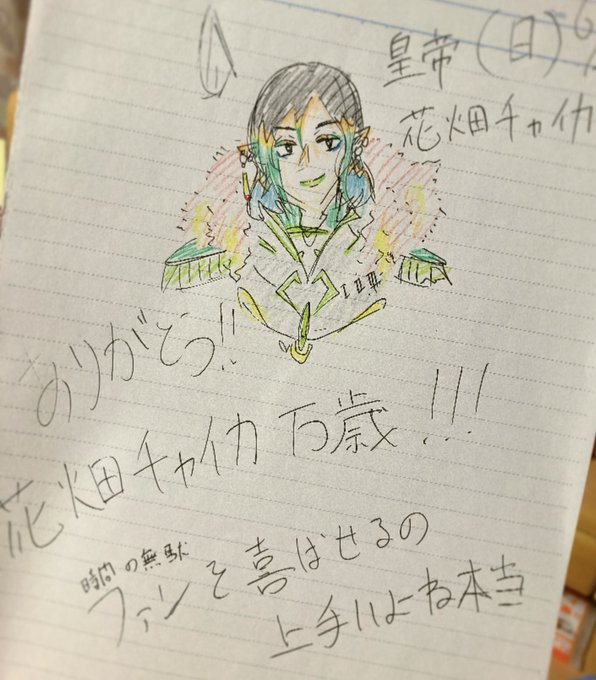 皇帝(日)
花畑チャイカ
ありがとう!!
花畑チャイカ 万歳!!!
時間の無駄
ファンを喜ばせるの
上手いよね本当